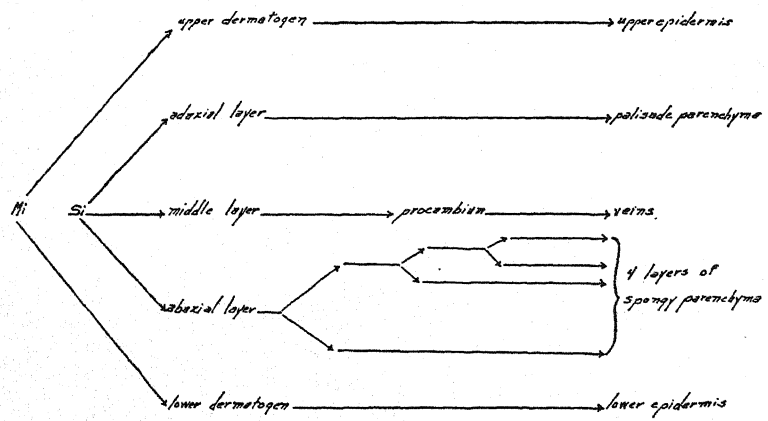 upper dermatogen upper epidermis
adaxial layer palisade parenchyma
Mi Si middle layer procambium veins.
4 layers of
abaxial layer spongy parenchyma
lower dermatogen lower epidermis